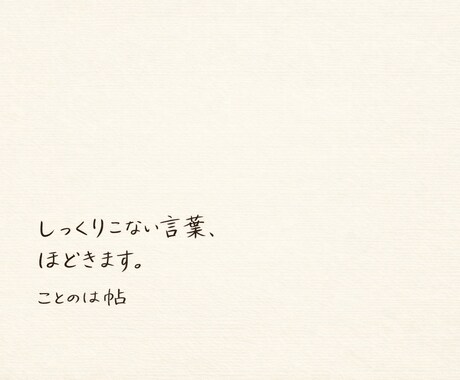 しっくりこない言葉、
ほどきます。
ことのは帖